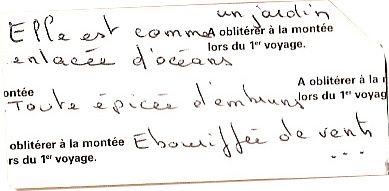 un jardin
Elle est comme
A oblitérer à la montée
lors du 1er voyage.
enlacée d'océans
A oblitérer à la r
ontée
lors du 1er voyag
Toute épicée d'embruns
oblitérer à la montée
rs du 1er voyage.
Ebouriffée de vents
...